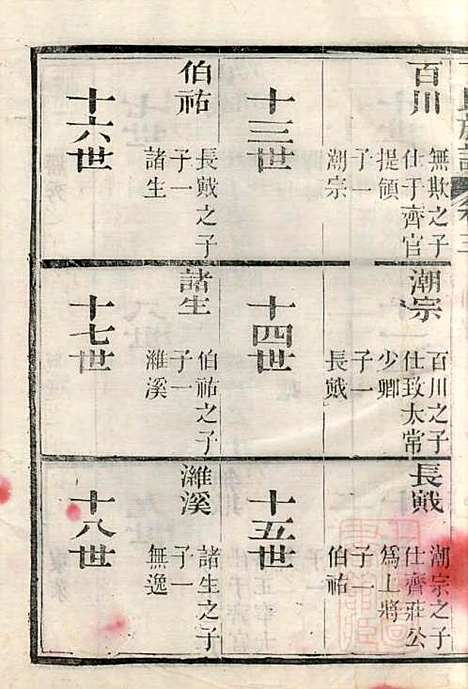 百川
無欺之子
仕于齊官
提領
子一
潮宗
潮宗
百川之子
仕致大常
少卿
子一
長戭
長戭
潮宗之子
仕齊莊公
爲上將
子一
伯祐
十三世
十四世
十五世
伯祐
長戭之子
子一
諸生
諸生
伯祐之子
子一
濰溪
濰溪
諸生之子
子一
無逸
十六世
十七世
十八世